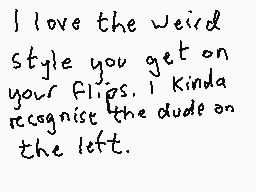 I love the weird
style you get on
your flips. I kinda
recognise the dude on
the left.